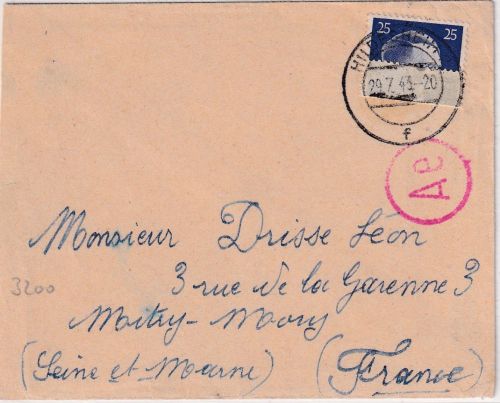 25 25
29.7.43.-20
f
Ae
Monsieur Drisse Léon
3 rue de la Garenne 3
3200
Mitry-Mory
(Seine et Marne) (France)